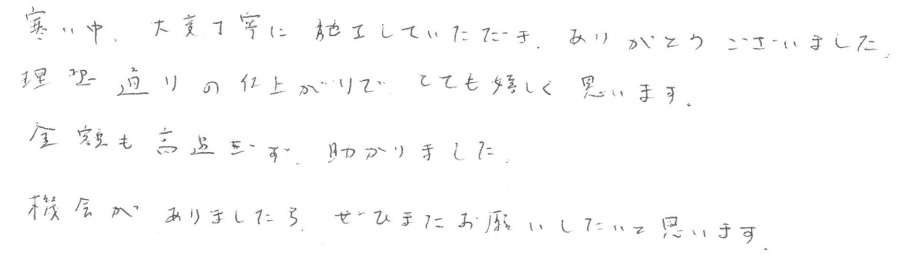 寒い中、大変丁寧に施工していただき、ありがとうございました。
理想通りの仕上がりで、とても嬉しく思います。
金額も高過ぎず、助かりました。
機会がありましたら、ぜひまたお願いしたいと思います。